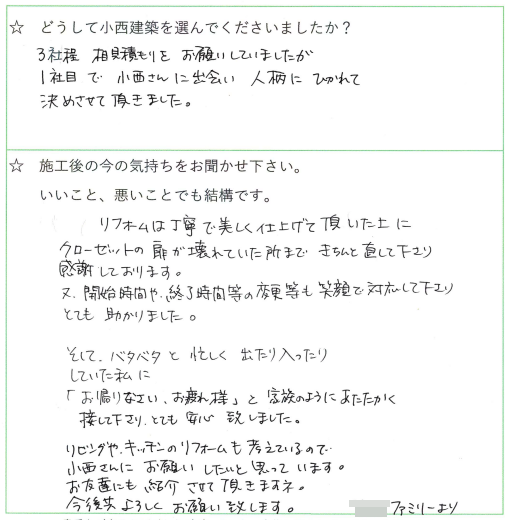 ☆ どうして小西建築を選んでくださいましたか？
3社程 相見積もりを お願いしていましたが
1社目で 小西さんに出会い 人柄に ひかれて
決めさせて頂きました。
☆ 施工後の今の気持ちをお聞かせ下さい。
いいこと、悪いことでも結構です。
リフォームは丁寧で美しく仕上げて頂いた上に
クローゼットの扉が壊れていた所まで きちんと直して下さり
感謝しております。
又、開始時間や、終了時間等の変更等も笑顔で対応して下さり
とても 助かりました。
そして、バタバタと 忙しく 出たり入ったり
していた私に
「お帰りなさい、お疲れ様」と 家族のようにあたたかく
接して下さり、とても 安心 致しました。
リビングや、キッチンのリフォームも考えているので
小西さんに お願いしたいと思っています。
お友達にも 紹介させて頂きますネ。
今後共よろしくお願い致します。
ファミリーより